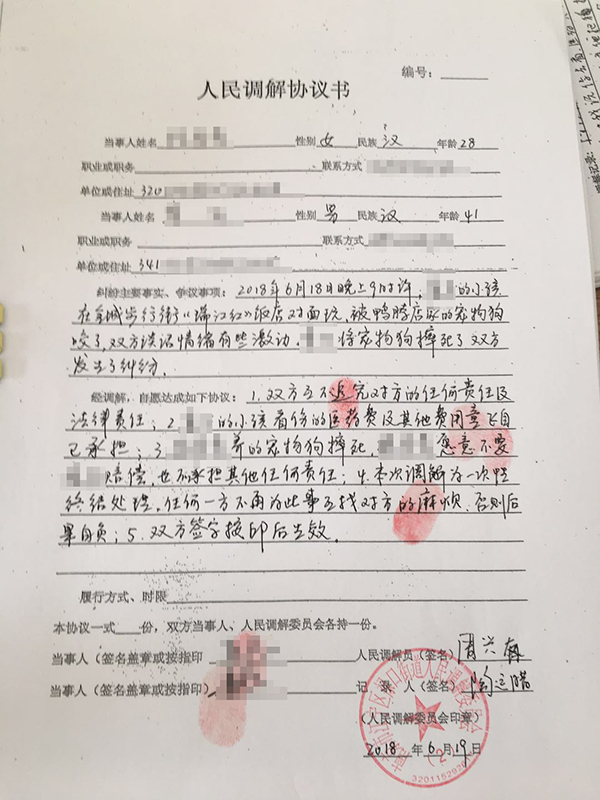 编号：
人民调解协议书
当事人姓名 性别 女 民族 汉 年龄 28
职业或职务 联系方式
单位或住址 320
当事人姓名 性别 男 民族 汉 年龄 41
职业或职务 联系方式
单位或住址 341
纠纷主要事实、争议事项：2018年6月18日晚上9时许， 的小孩
在金城步行街《满江红》饭店对面玩，被鸭脖店家的宠物狗
咬了，双方谈话情绪有些激动， 将宠物狗摔死了双方
发生了纠纷。
经调解，自愿达成如下协议：1.双方互不追究对方的任何责任及
法律责任；2. 的小孩看伤的医药费及其他费用 自
己承担；3. 养的宠物狗摔死， 愿意不要
赔偿，也不承担其他任何责任；4.本次调解为一次性
终结处理，任何一方不再为此事互找对方的麻烦，否则后
果自负；5.双方签字按印后生效。
履行方式、时限
本协议一式 份，双方当事人、人民调解委员会各持一份。
当事人（签名盖章或按指印 人民调解员（签名）周兴
当事人（签名盖章或按指印） 记 录 人（签名）
（人民调解委员会印章）
2018 年 6 月 19 日
人民调解委员会
(2)